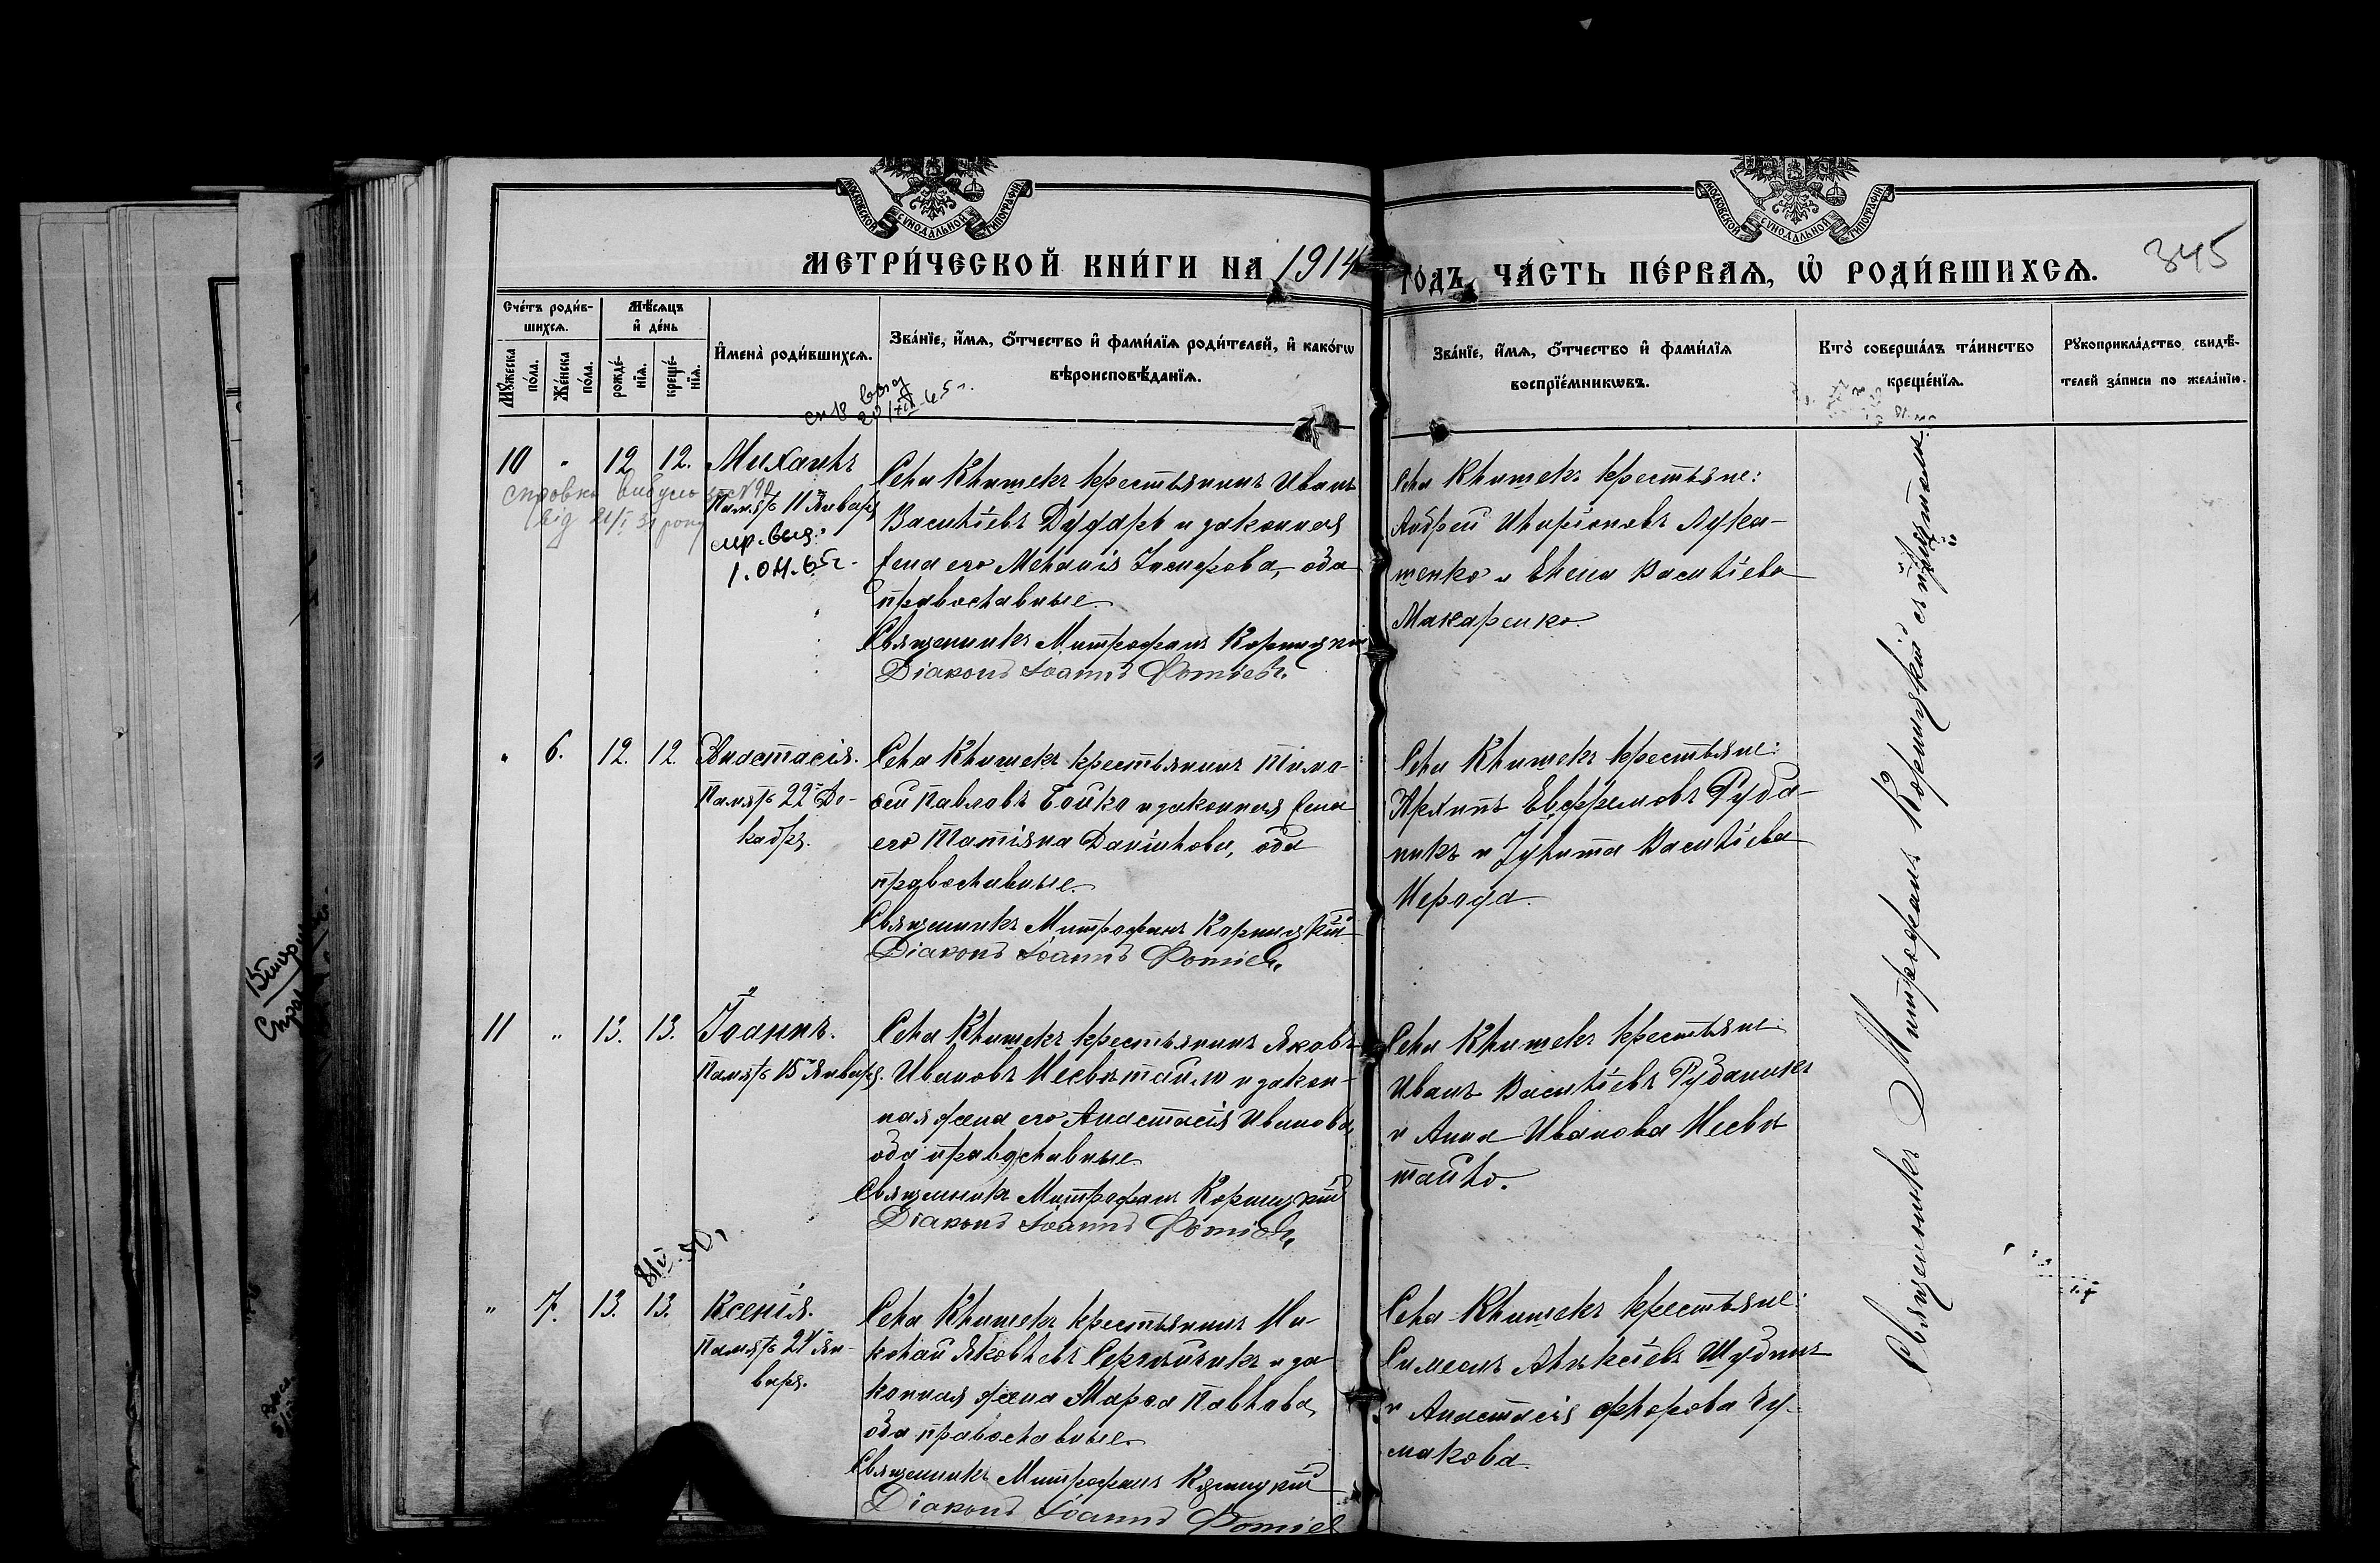 МОСКОВСКОЙ СѴНОДАЛЬНОЙ ТИПОГРАФІИ
МОСКОВСКОЙ СѴНОДАЛЬНОЙ ТИПОГРАФІИ
МЕТРИ́ЧЕСКОЙ КНИ́ГИ НА 1914 ГО́ДЪ, ЧА́СТЬ ПЕ́РВАѦ, Ѽ РОДИ́ВШИХСѦ.
345
Сче́тъ роди́в-
шихсѧ.
Мѣ́сѧцъ
и҆ де́нь
Мꙋ́жеска
по́ла.
Же́нска
по́ла.
рожде́-
нїѧ.
креще́-
нїѧ.
И҆мена̀ роди́вшихсѧ.
Зва́нїе, и҆́мѧ, ѻ҆́тчество и҆ фами́лїѧ роди́телей, и҆ како́гѡ
вѣроисповѣ́данїѧ.
Зва́нїе, и҆́мѧ, ѻ҆́тчество и҆ фами́лїѧ
воспрїе́мникѡвъ.
Кто̀ соверша́лъ та́инство
креще́нїѧ.
Рꙋкоприкла́дство свидѣ́-
телей за́писи по жела́нїю.
10 " 12 12. Михаилъ
Память 11 Января
спр. выд.
Села Клишекъ крестьянинъ Иванъ
Васильевъ Дударь и законная
жена его Меланія , оба
православные.
Священникъ Митрофанъ Корницкій
Діаконъ Іоаннъ Фомичъ.
Села Клишекъ крестьяне:
Андрей Иларіоновъ Лука-
шенко и Елена Васильева
Макаренко.
" 6. 12. 12 Анастасія.
Память 22 Де-
кабря.
Села Клишекъ крестьянинъ Тимо-
ѳей Павловъ Бойко и законная жена
его Татіяна Даніилова, оба
православные.
Священникъ Митрофанъ Корницкій
Діаконъ Іоаннъ Фомичъ.
Села Клишекъ крестьяне:
Архипъ Евфремовъ Руба-
никъ и Іулита Васильева
Нерода.
11 " 13. 13. Іоаннъ.
Память 15 Января.
Села Клишекъ крестьянинъ Яковъ
Ивановъ Несвятайло и закон-
ная жена его Анастасія Иванова,
оба православные.
Священникъ Митрофанъ Корницкій
Діаконъ Іоаннъ Фомичъ.
Села Клишекъ крестьяне
Иванъ Васильевъ Рубаникъ
и Анна Иванова Несвя
тайло.
" 7. 13. 13. Ксенія.
Память 24 Ян-
варя.
Села Клишекъ крестьянинъ Ни-
колай Яковлевъ и за
конная жена Марѳа Павлова,
оба православные.
Священникъ Митрофанъ Корницкій
Діаконъ Іоаннъ Фомичъ
Села Клишекъ крестьяне:
Симеонъ Алексіевъ
и Анастасія Флорова Чу-
макова.
Священникъ Митрофанъ Корницкій съ причтомъ.